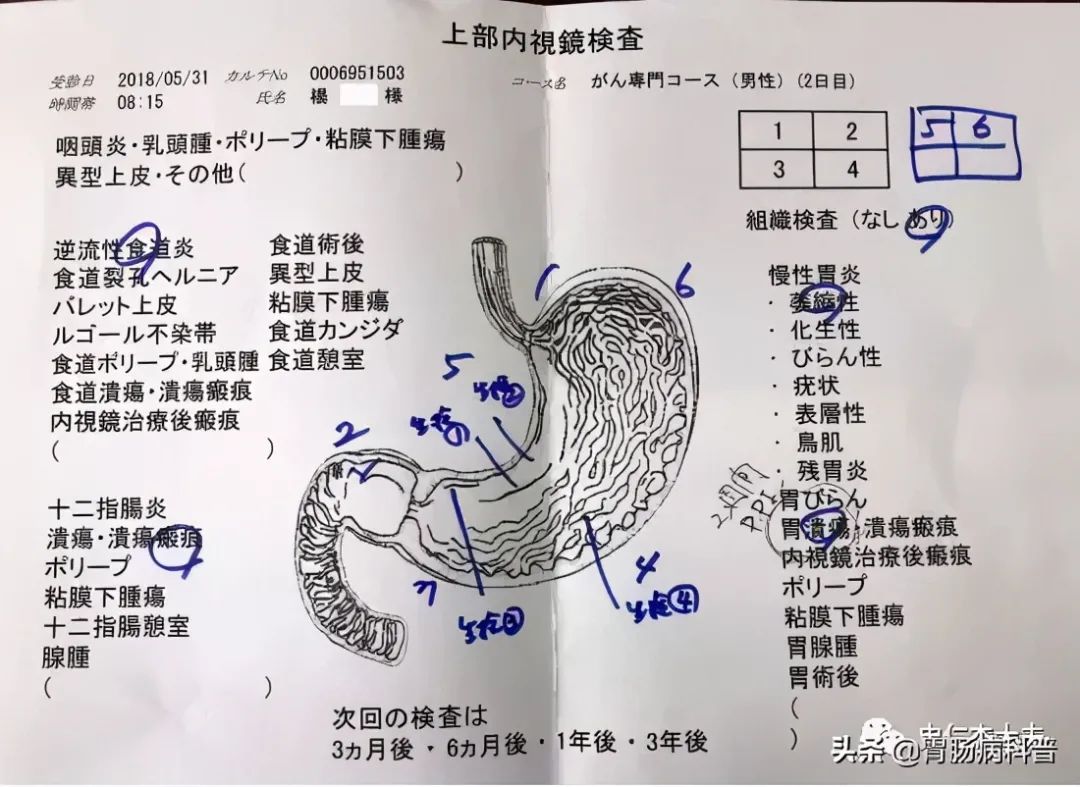 上部内視鏡検査
受診日 2018/05/31 カルテNo 0006951503
コース名 がん専門コース（男性）(2日目)
時間帯 08:15 氏名 様
咽頭炎・乳頭腫・ポリープ・粘膜下腫瘍
異型上皮・その他( )
1 2
3 4
5 6
組織検査（なし あり）
逆流性食道炎
食道裂孔ヘルニア
バレット上皮
ルゴール不染帯
食道ポリープ・乳頭腫
食道潰瘍・潰瘍瘢痕
内視鏡治療後瘢痕
( )
食道術後
異型上皮
粘膜下腫瘍
食道カンジダ
食道憩室
十二指腸炎
潰瘍・潰瘍瘢痕
ポリープ
粘膜下腫瘍
十二指腸憩室
腺腫
( )
1
6
5
生検②
2
4
生検④
慢性胃炎
・萎縮性
・化生性
・びらん性
・疣状
・表層性
・鳥肌
・残胃炎
胃びらん
2週間
PPI
胃潰瘍・潰瘍瘢痕
内視鏡治療後瘢痕
ポリープ
粘膜下腫瘍
胃腺腫
胃術後
(
)
次回の検査は
3ヵ月後・6ヵ月後・1年後・3年後
头条@胃肠病科普